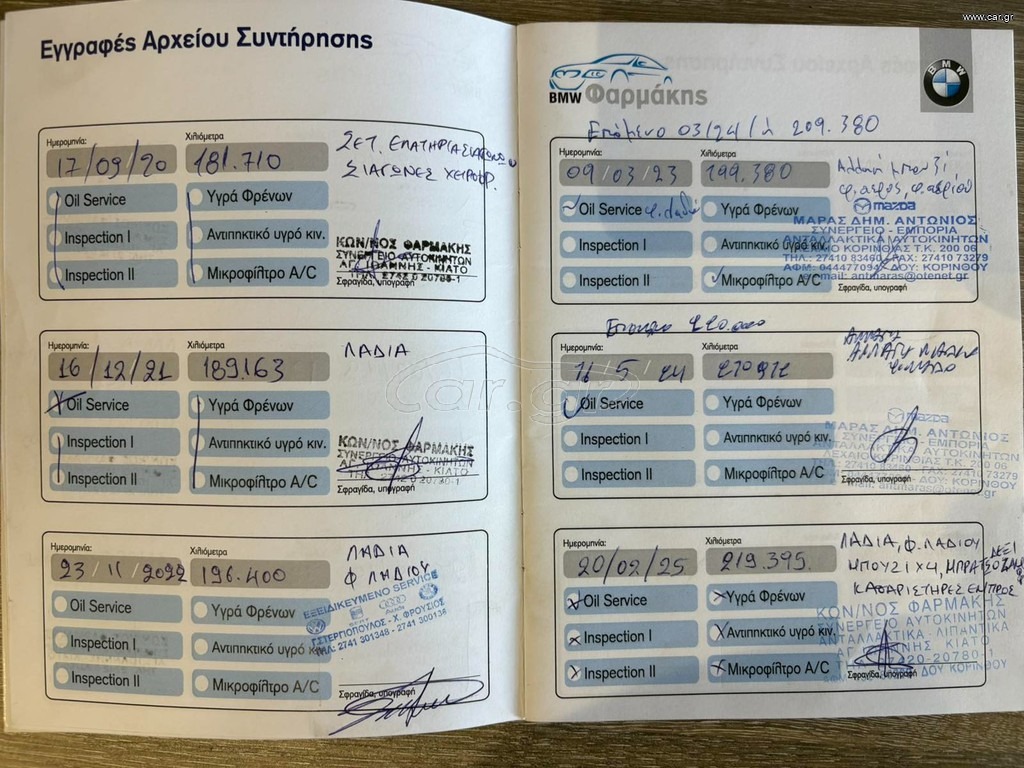 www.car.gr
Εγγραφές Αρχείου Συντήρησης
Ημερομηνία: Χιλιόμετρα
17/09/20 181.710
ΣΙΑΓΩΝΕΣ ΧΕΙΡΟΦΡ.
Oil Service Υγρά Φρένων
Inspection I Αντιπηκτικό υγρό κιν.
Inspection II Μικροφίλτρο A/C
ΚΩΝ/ΝΟΣ ΦΑΡΜΑΚΗΣ
ΣΥΝΕΡΓΕΙΟ ΑΥΤΟΚΙΝΗΤΩΝ
ΑΓ. ΙΩΑΝΝΗΣ - ΚΙΑΤΟ
ΤΗΛ. 27420 20780-1
Σφραγίδα, υπογραφή
Ημερομηνία: Χιλιόμετρα
16/12/21 189.163
ΛΑΔΙΑ
Oil Service Υγρά Φρένων
Inspection I Αντιπηκτικό υγρό κιν.
Inspection II Μικροφίλτρο A/C
ΚΩΝ/ΝΟΣ ΦΑΡΜΑΚΗΣ
ΣΥΝΕΡΓΕΙΟ ΑΥΤΟΚΙΝΗΤΩΝ
ΚΙΑΤΟ
Σφραγίδα, υπογραφή
Ημερομηνία: Χιλιόμετρα
23/11/2022 196.400
ΛΑΔΙΑ
Oil Service Υγρά Φρένων
Inspection I Αντιπηκτικό υγρό κιν.
Inspection II Μικροφίλτρο A/C
ΕΞΕΙΔΙΚΕΥΜΕΝΟ SERVICE
Γ.ΣΤΕΡΓΙΟΠΟΥΛΟΣ - Χ. ΦΡΟΥΣΙΟΣ
ΤΗΛ: 2741 301348 - 2741 300138
Σφραγίδα, υπογραφή
car.gr
BMW Φαρμάκης
BMW
Επόμενο 03/24/ή 209.380
Ημερομηνία: Χιλιόμετρα
09/03/23 199.380
Αλλαγή μπουζί,
φ. αερος, φ. αεριου
Oil Service φ. λαδιού Υγρά Φρένων
Inspection I Αντιπηκτικό υγρό κιν.
Inspection II Μικροφίλτρο A/C
mazda
ΜΑΡΑΣ ΔΗΜ. ΑΝΤΩΝΙΟΣ
ΣΥΝΕΡΓΕΙΟ - ΕΜΠΟΡΙΑ
ΑΝΤΑΛΛΑΚΤΙΚΑ ΑΥΤΟΚΙΝΗΤΩΝ
ΛΕΧΑΙΟ ΚΟΡΙΝΘΙΑΣ Τ.Κ. 200 06
ΤΗΛ.: 27410 83460 FAX: 27410 73279
ΑΦΜ: 044477094 ΔΟΥ: ΚΟΡΙΝΘΟΥ
e-mail: antmaras@otenet.gr
Σφραγίδα, υπογραφή
Ημερομηνία: Χιλιόμετρα
16 5 24 210972
Oil Service Υγρά Φρένων
Inspection I Αντιπηκτικό υγρό κιν.
Inspection II Μικροφίλτρο A/C
mazda
ΜΑΡΑΣ ΔΗΜ. ΑΝΤΩΝΙΟΣ
ΣΥΝΕΡΓΕΙΟ - ΕΜΠΟΡΙΑ
ΑΝΤΑΛΛΑΚΤΙΚΑ ΑΥΤΟΚΙΝΗΤΩΝ
ΛΕΧΑΙΟ ΚΟΡΙΝΘΙΑΣ Τ.Κ. 200 06
Σφραγίδα, υπογραφή
Ημερομηνία: Χιλιόμετρα
20/02/25 219.395
ΛΑΔΙΑ, Φ. ΛΑΔΙΟΥ
ΜΠΟΥΖΙ Χ4,
ΔΕΞΙ
ΚΑΘΑΡΙΣΤΗΡΕΣ ΕΜΠΡΟΣ
Oil Service Υγρά Φρένων
Inspection I Αντιπηκτικό υγρό κιν.
Inspection II Μικροφίλτρο A/C
ΚΩΝ/ΝΟΣ ΦΑΡΜΑΚΗΣ
ΣΥΝΕΡΓΕΙΟ ΑΥΤΟΚΙΝΗΤΩΝ
ΑΝΤΑΛΛΑΚΤΙΚΑ - ΛΙΠΑΝΤΙΚΑ
ΑΓ. ΙΩΑΝΝΗΣ ΚΙΑΤΟ
ΔΟΥ ΚΟΡΙΝΘΟΥ
Σφραγίδα, υπογραφή